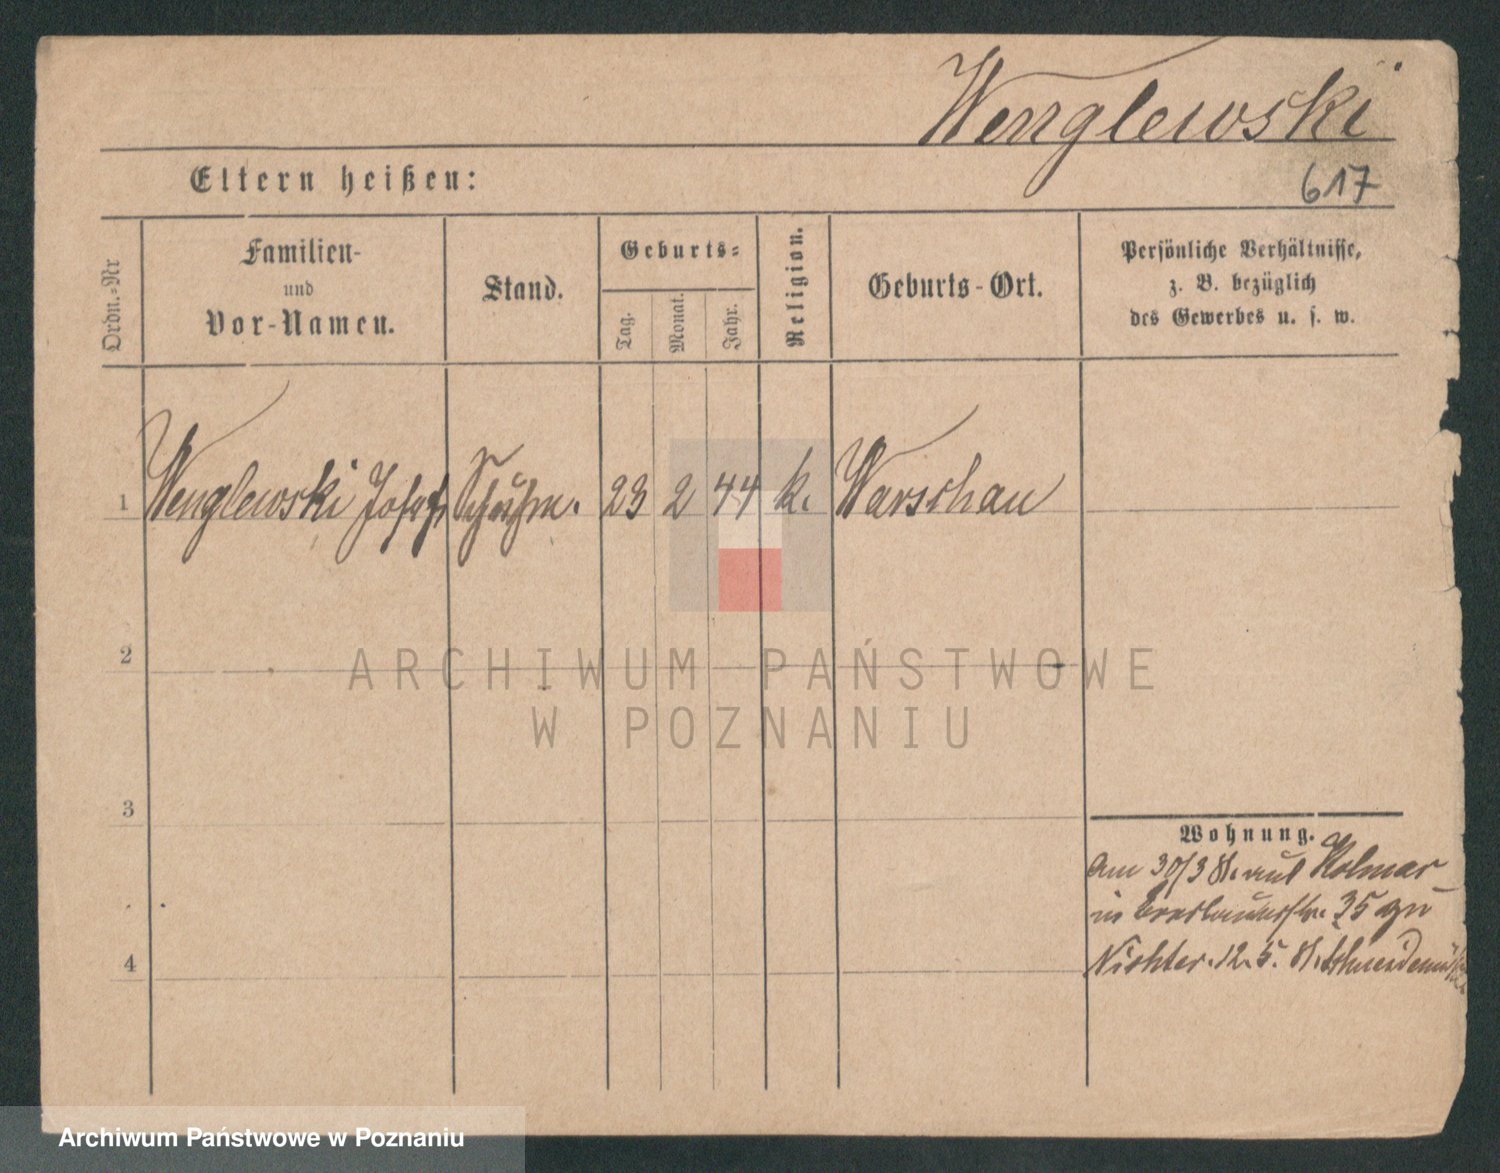 Wenglewski
Eltern heißen:
617
Ordn.-Nr
Familien-
und
Vor-Namen.
Stand.
Geburts-
Tag.
Monat.
Jahr.
Religion.
Geburts-Ort.
Persönliche Verhältnisse,
z. B. bezüglich
des Gewerbes u. s. w.
1 Wenglewski Josef Schuhm. 23 2 44 k. Warschau
2
3
4
Wohnung.
Am 30/3 81. aus Kolmar
in Breslauerstr. 35 zu
Nichter. 12. 5. 81. Schneidemühl
ARCHIWUM PAŃSTWOWE
W POZNANIU
Archiwum Państwowe w Poznaniu